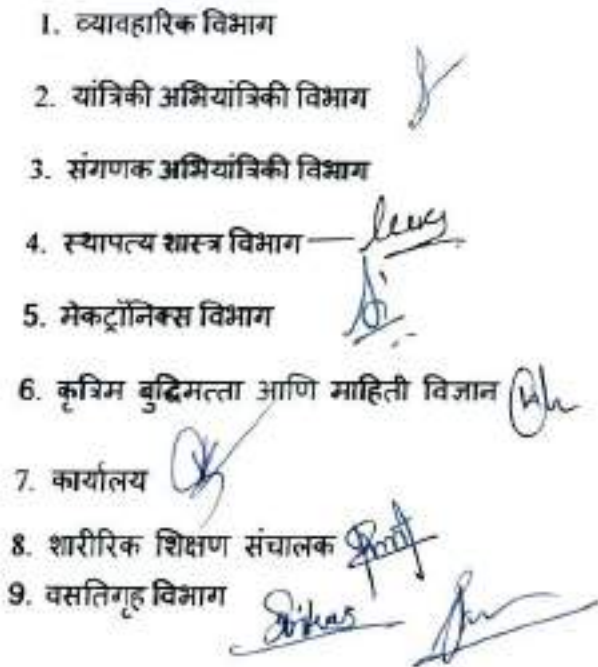 1. व्यावहारिक विभाग
2. यांत्रिकी अभियांत्रिकी विभाग
3. संगणक अभियांत्रिकी विभाग
4. स्थापत्य शास्त्र विभाग —
5. मेकट्रॉनिक्स विभाग
6. कृत्रिम बुद्धिमत्ता आणि माहिती विज्ञान
7. कार्यालय
8. शारीरिक शिक्षण संचालक
9. वसतिगृह विभाग